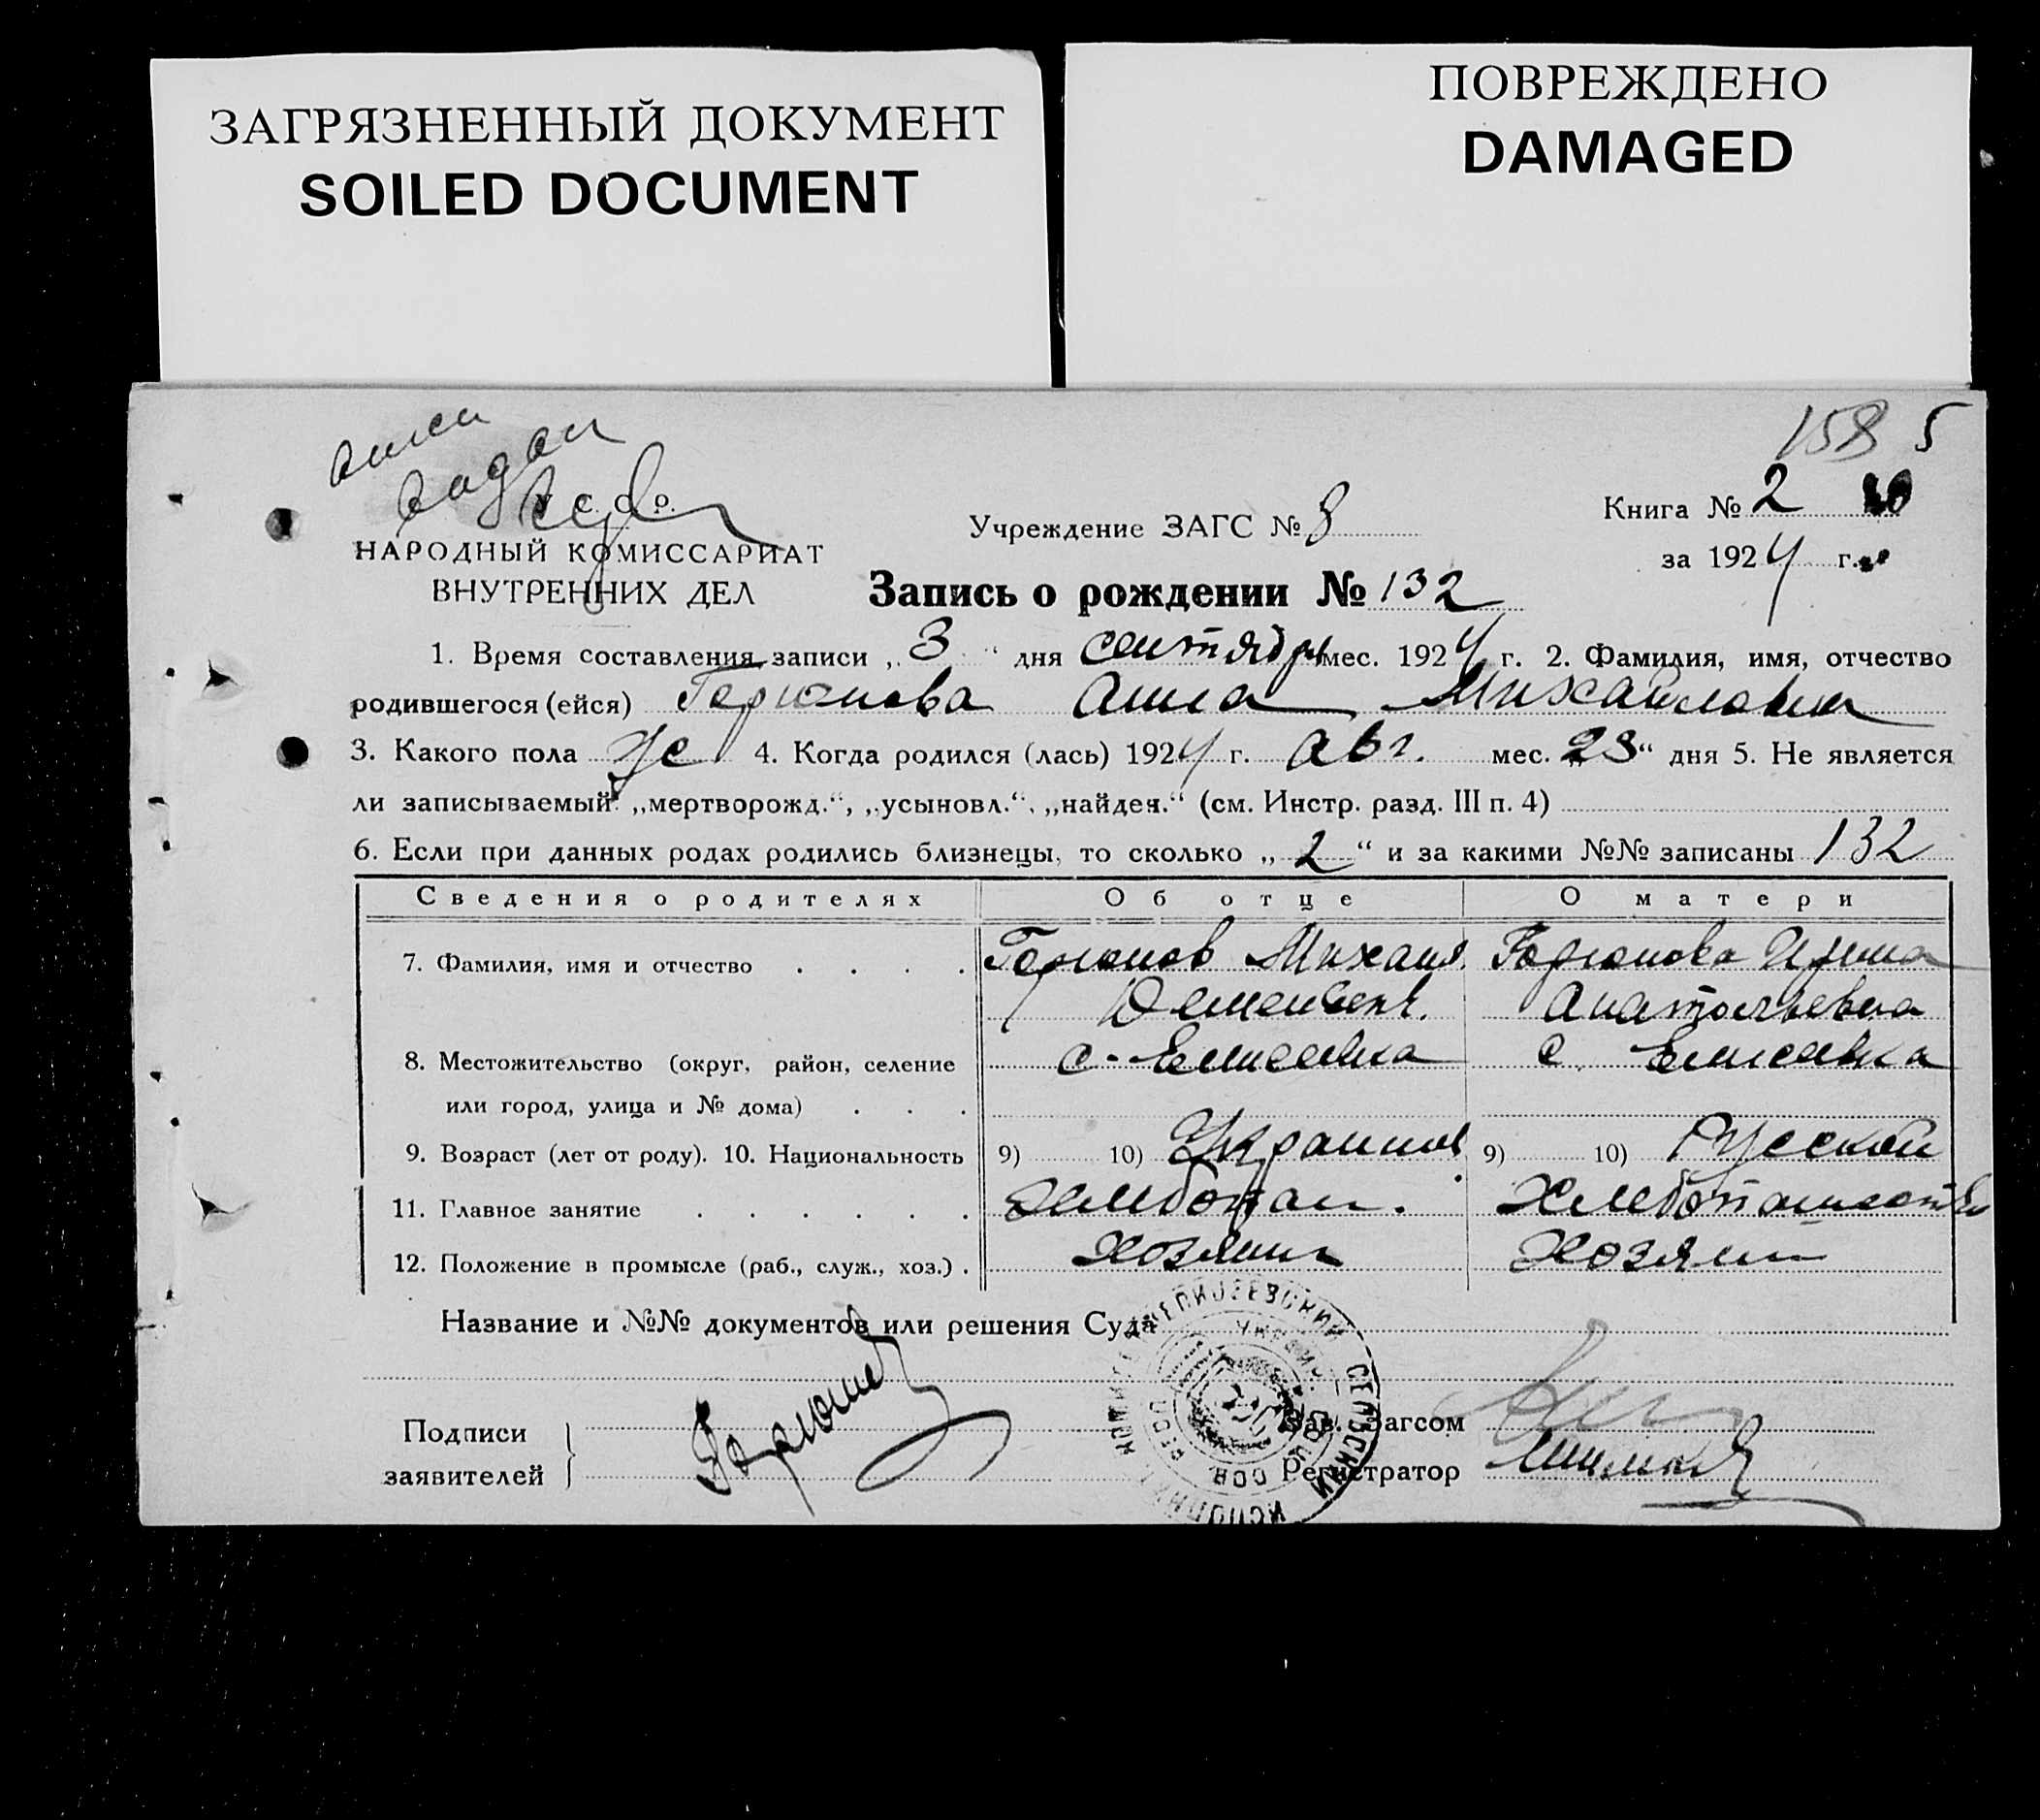 ЗАГРЯЗНЕННЫЙ ДОКУМЕНТ
SOILED DOCUMENT
ПОВРЕЖДЕНО
DAMAGED
158 5
С. Р.
НАРОДНЫЙ КОМИССАРИАТ
ВНУТРЕННИХ ДЕЛ
Учреждение ЗАГС № 8
Книга № 2
за 1924 г.
Запись о рождении № 132
1. Время составления записи „ 3 “ дня сентября мес. 1924 г. 2. Фамилия, имя, отчество
родившегося (ейся) Горюнова Анна Михайловна
3. Какого пола же 4. Когда родился (лась) 1924 г. авг. мес. „23“ дня 5. Не является
ли записываемый: „мертворожд.“, „усыновл.“, „найден.“ (см. Инстр. разд. III п. 4)
6. Если при данных родах родились близнецы, то сколько „ 2 “ и за какими №№ записаны 132
Сведения о родителях Об отце О матери
7. Фамилия, имя и отчество . . . . Горюнов Михаил Горюнова Ирина
Дементеев. Анатольевна
8. Местожительство (округ, район, селение с. Елисеевка с. Елисеевка
или город, улица и № дома) . . .
9. Возраст (лет от роду). 10. Национальность 9) 10) Украинов 9) 10) Русской
11. Главное занятие . . . . . . Хлебопаш. Хлебопашество
12. Положение в промысле (раб., служ., хоз.) . Хозяин Хозяин
Название и №№ документов или решения Суда
Подписи
заявителей
Зав. Загсом
Регистратор
СЕЛЬСКИЙ ИСПОЛНИТ